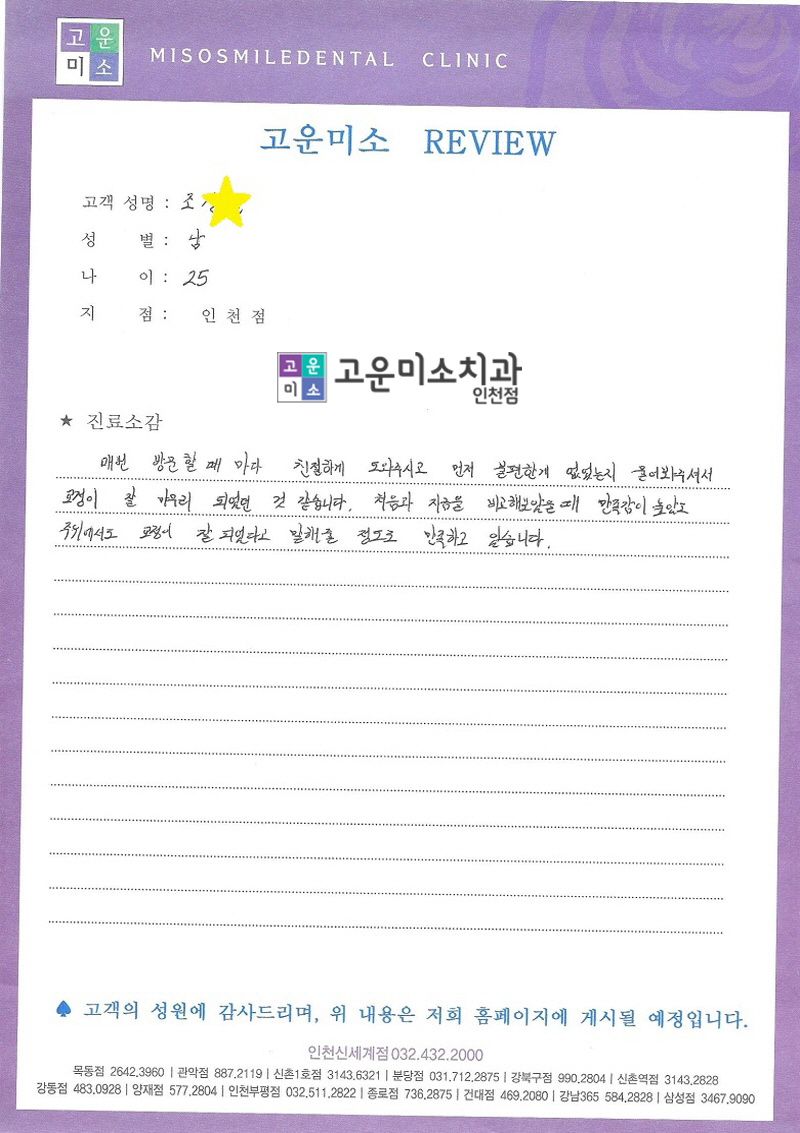 고운
미소
MISOSMILEDENTAL CLINIC
고운미소 REVIEW
고객 성명 : 조
성 별 : 남
나 이 : 25
지 점 : 인천점
고운
미소
고운미소치과
인천점
★ 진료소감
매번 방문할 때 마다 친절하게 도와주시고 먼저 불편한게 없었는지 물어봐주셔서
교정이 잘 마무리 되었던 것 같습니다. 처음과 지금을 비교해보았을 때 만족감이 높았고
주위에서도 교정이 잘 되었다고 말해줄 정도로 만족하고 있습니다.
♠ 고객의 성원에 감사드리며, 위 내용은 저희 홈페이지에 게시될 예정입니다.
인천신세계점 032.432.2000
목동점 2642.3960 | 관악점 887.2119 | 신촌1호점 3143.6321 | 분당점 031.712.2875 | 강북구점 990.2804 | 신촌역점 3143.2828
강동점 483.0928 | 양재점 577.2804 | 인천부평점 032.511.2822 | 종로점 736.2875 | 건대점 469.2080 | 강남365 584.2828 | 삼성점 3467.9090